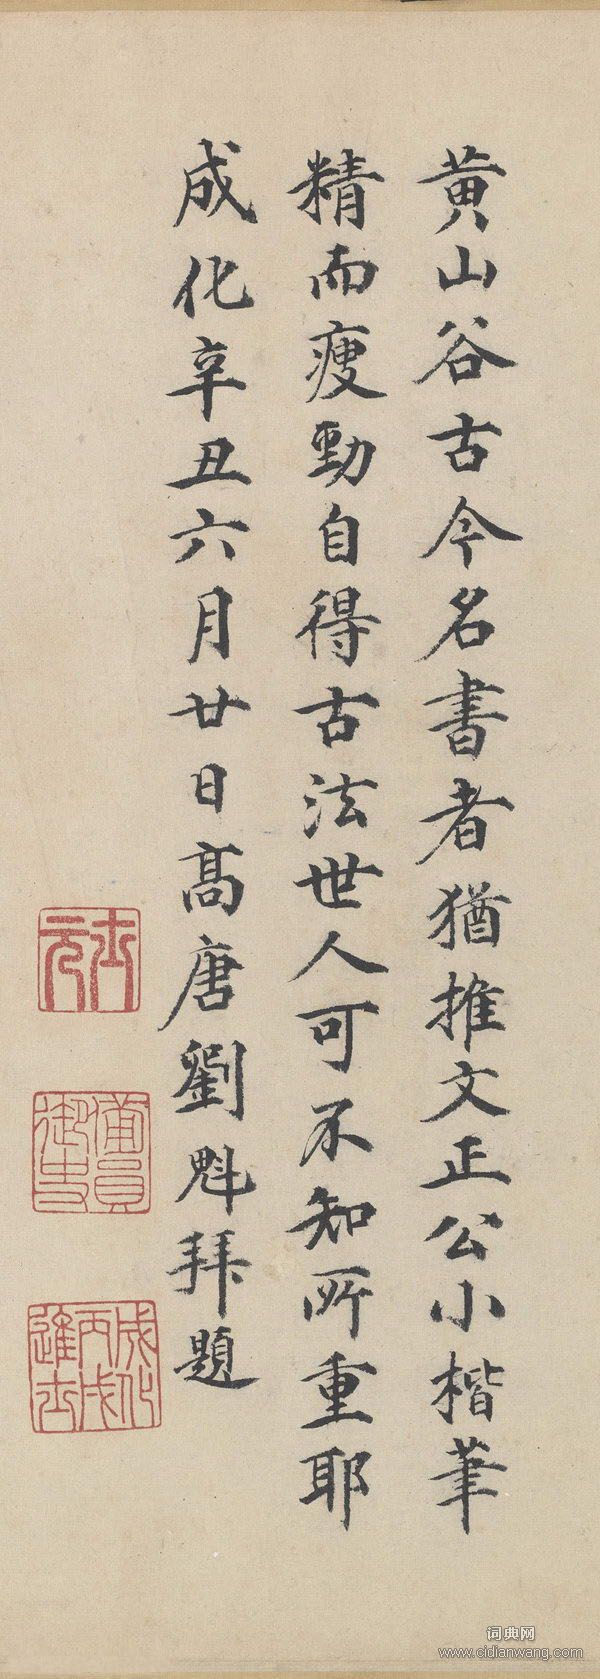 黄山谷古今名書者猶推文正公小楷筆
精而瘦勁自得古法世人可不知所重耶
成化辛丑六月廿日髙唐劉魁拜題
士元
備員御史
成化丙戌進士
词典网
www.cidianwang.com